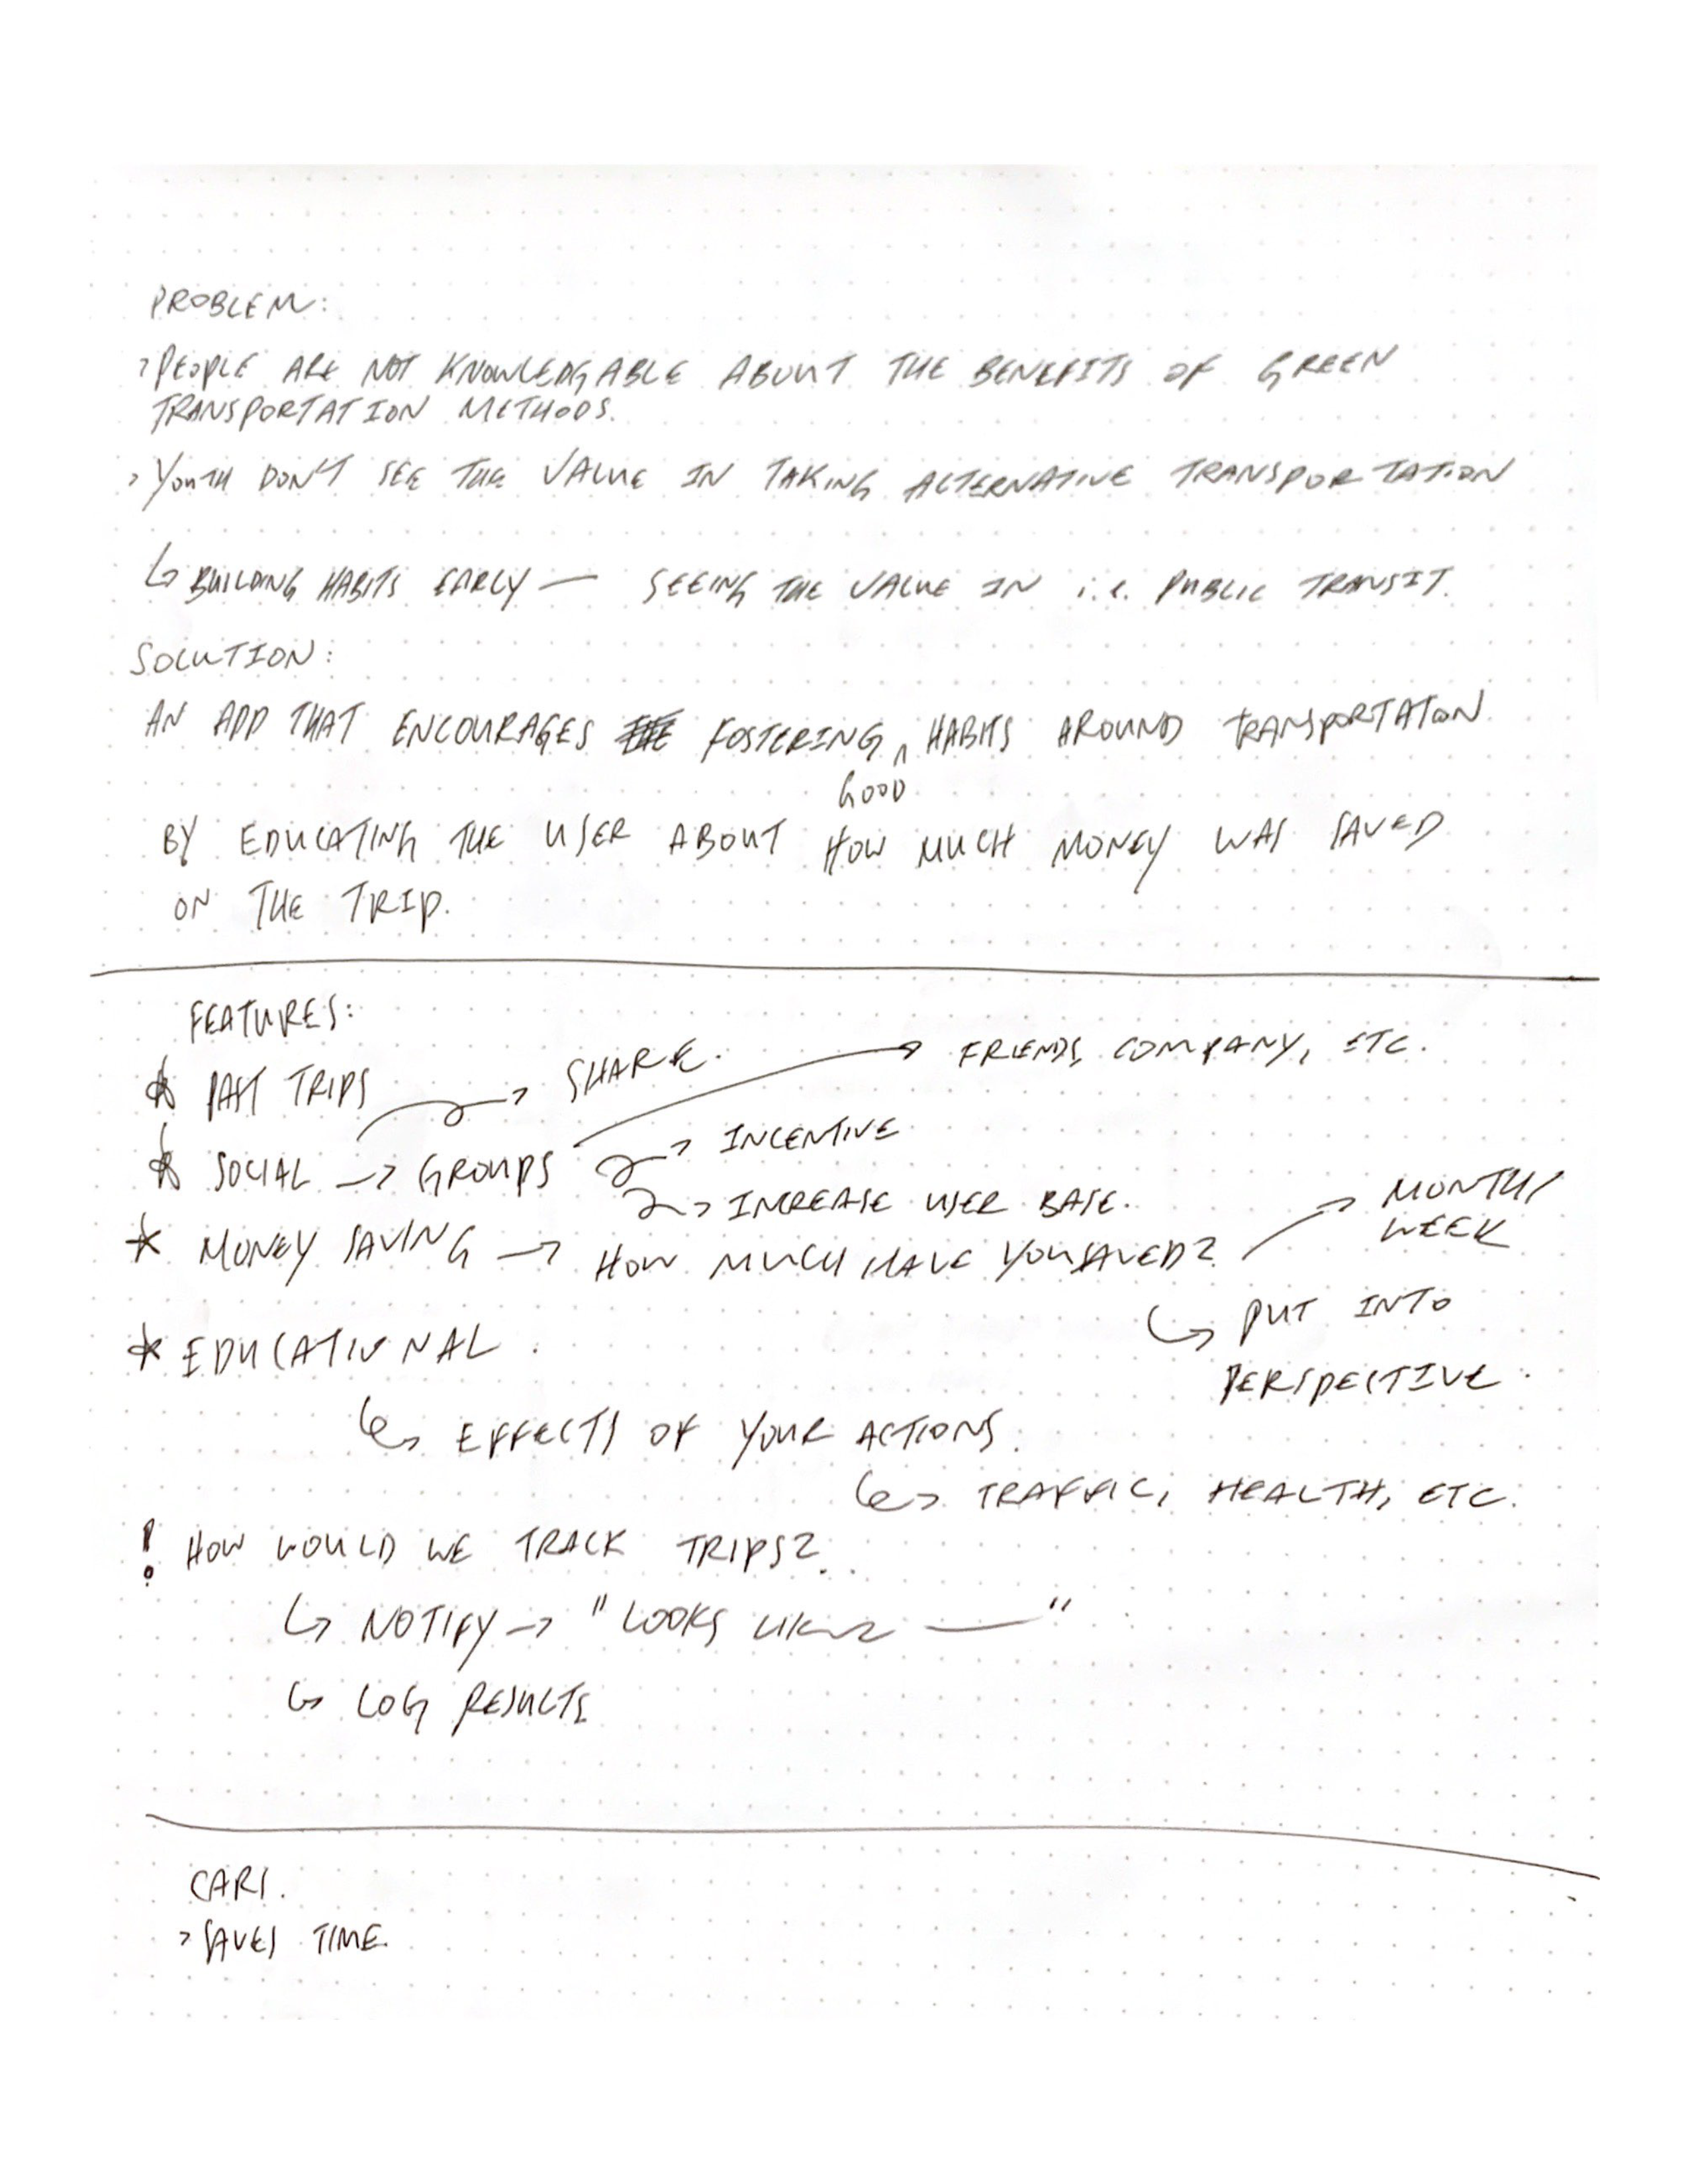 PROBLEM:
> PEOPLE ARE NOT KNOWLEDGABLE ABOUT THE BENEFITS OF GREEN
TRANSPORTATION METHODS.
> YOUTH DON'T SEE THE VALUE IN TAKING ALTERNATIVE TRANSPORTATION
↳ BUILDING HABITS EARLY — SEEING THE VALUE IN i.e. PUBLIC TRANSIT.
SOLUTION:
AN APP THAT ENCOURAGES FOSTERING ^ HABITS AROUND TRANSPORTATION
GOOD
BY EDUCATING THE USER ABOUT HOW MUCH MONEY WAS SAVED
ON THE TRIP.
FEATURES:
* PAST TRIPS → SHARE. → FRIENDS, COMPANY, ETC.
* SOCIAL → GROUPS → INCENTIVE
→ INCREASE USER BASE.
* MONEY SAVING → HOW MUCH HAVE YOU SAVED? → MONTH/
WEEK
↳ PUT INTO
PERSPECTIVE.
* EDUCATIONAL.
↳ EFFECTS OF YOUR ACTIONS.
↳ TRAFFIC, HEALTH, ETC.
! HOW WOULD WE TRACK TRIPS?
↳ NOTIFY → "LOOKS LIKE —"
↳ LOG RESULTS
CARS.
> SAVES TIME.